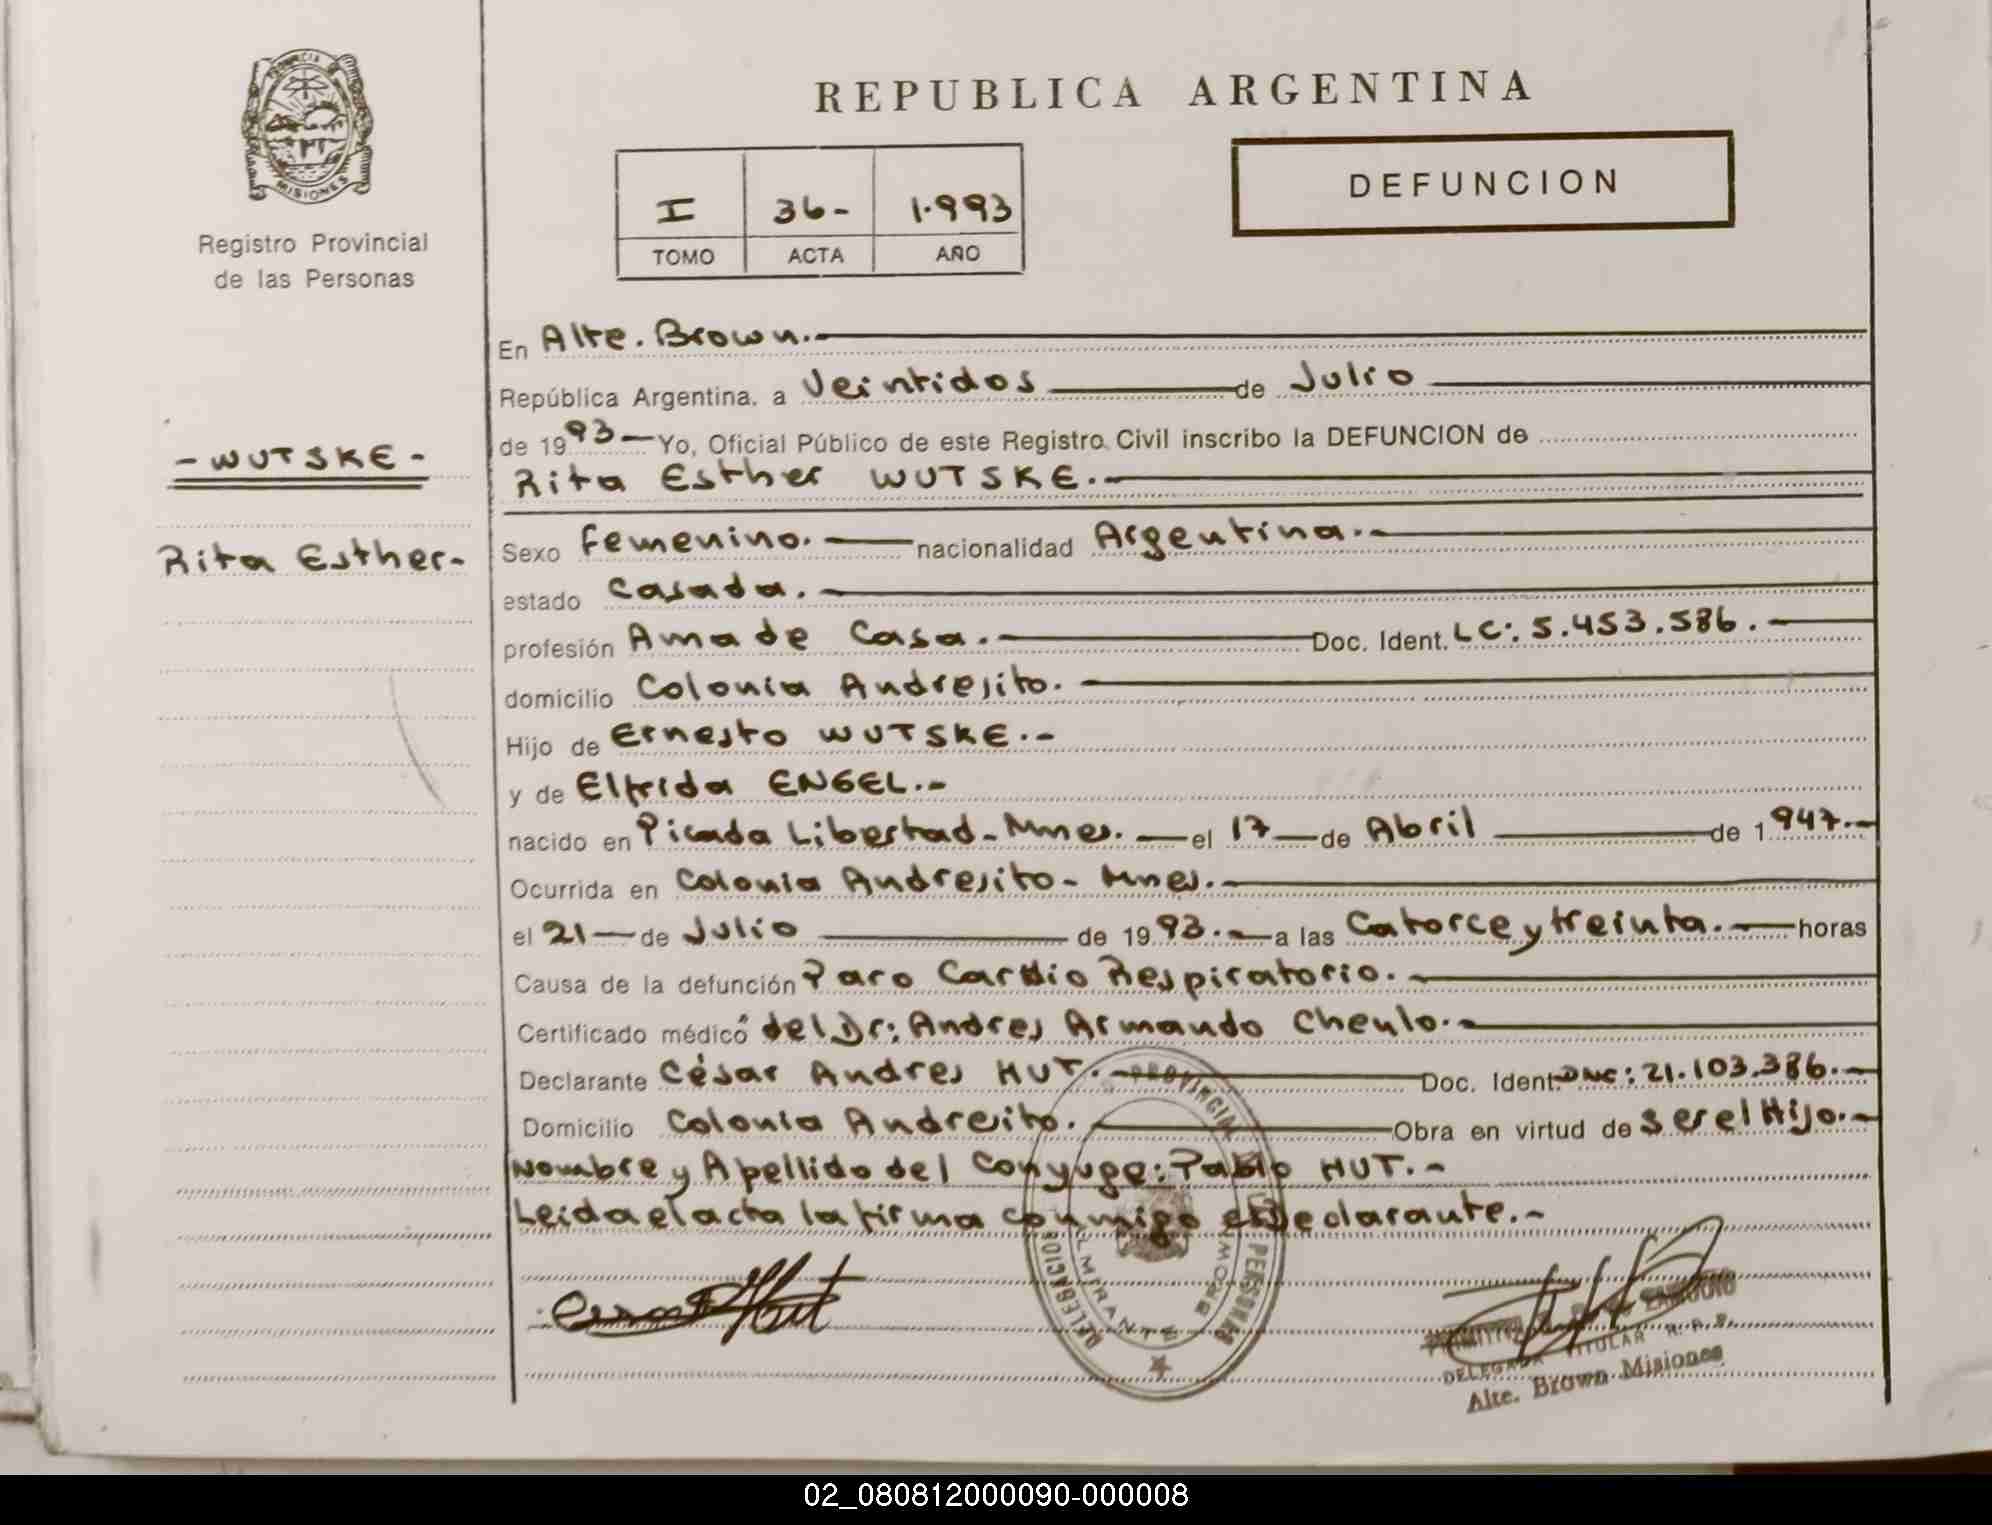 PROVINCIA DE
MISIONES
Registro Provincial
de las Personas
- WUTSKE -
Rita Esther-
REPUBLICA ARGENTINA
I 36- 1.993
TOMO ACTA AÑO
DEFUNCION
En Alte. Brown.-
República Argentina, a Veintidos de Julio
de 1993 - Yo, Oficial Público de este Registro Civil inscribo la DEFUNCION de
Rita Esther WUTSKE.-
Sexo Femenino.- nacionalidad Argentina.-
estado Casada.-
profesión Ama de Casa.- Doc. Ident. LC: 5.453.586.-
domicilio Colonia Andresito.-
Hijo de Ernesto WUTSKE.-
y de Elfrida ENGEL.-
nacido en Picada Libertad - Mnes. - el 17 - de Abril de 1947.-
Ocurrida en Colonia Andresito - Mnes.-
el 21 - de Julio de 1993.- a las Catorce y treinta.- horas
Causa de la defunción Paro Cardio Respiratorio.-
Certificado médico del Dr: Andres Armando Chenlo.-
Declarante César Andres HUT.- Doc. Ident. DNI: 21.103.386.-
Domicilio Colonia Andresito.- Obra en virtud de ser el Hijo.-
Nombre y Apellido del Conyuge: Pablo HUT.-
Leida el acta la firma conmigo el Declarante.-
PROVINCIAL
PERSONAS
DELEGACION
ALMIRANTE BROWN
DELEGADA TITULAR R. P. P.
Alte. Brown Misiones
02_080812000090-000008